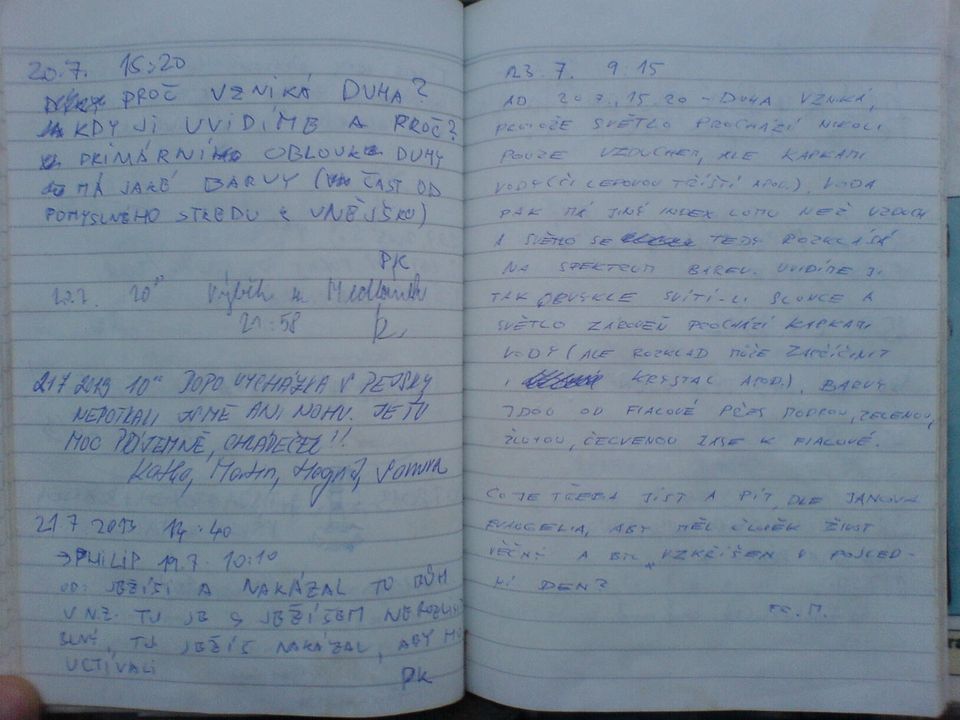 20.7. 15:20
PROČ VZNIKÁ DUHA?
KDY JI UVIDÍME A PROČ?
PRIMÁRNÍ OBLOUK DUHY
MÁ JAKÉ BARVY (ČÁST OD
POMYSLNÉHO STŘEDU K VNĚJŠKU)
PK
10
21:58
21.7 2013 10 DOPO VYCHÁZKA S PEJSKY
NEPOTKALI JSME ANI NOHU. JE TU
MOC PŘÍJEMNĚ, CHLÁDEČEK!!
Martin,
21.7 2013 14:40
→ PHILIP 19.7. 10:10
JEŽÍŠI A NAKÁZAL TO BŮH
V NZ. TU JE S JEŽÍŠEM
TU JEŽÍŠ NAKÁZAL, ABY HO
UCTÍVALI
PK
23.7. 9:15
AD 20.7., 15.20 - DUHA VZNIKÁ,
PROTOŽE SVĚTLO PROCHÁZÍ NIKOLI
POUZE VZDUCHEM, ALE KAPKAMI
VODY (ČI LEDOVOU TŘÍŠTÍ APOD.), VODA
PAK MÁ JINÝ INDEX LOMU NEŽ VZDUCH
A SVĚTLO SE TEDY ROZKLÁDÁ
NA SPEKTRUM BAREV. UVIDÍME JI
TAK OBVYKLE SVÍTÍ-LI SLUNCE A
SVĚTLO ZÁROVEŇ PROCHÁZÍ KAPKAMI
VODY (ALE ROZKLAD MŮŽE ZAPŘÍČINIT
I KRYSTAL APOD.), BARVY
JDOU OD FIALOVÉ PŘES MODROU, ZELENOU,
ŽLUTOU, ČERVENOU ZASE K FIALOVÉ.
CO JE TŘEBA JÍST A PÍT, DLE JANOVA
EVANGELIA, ABY MĚL ČLOVĚK ŽIVOT
VĚČNÝ A BYL VZKŘÍŠEN V POSLED-
NÍ DEN?